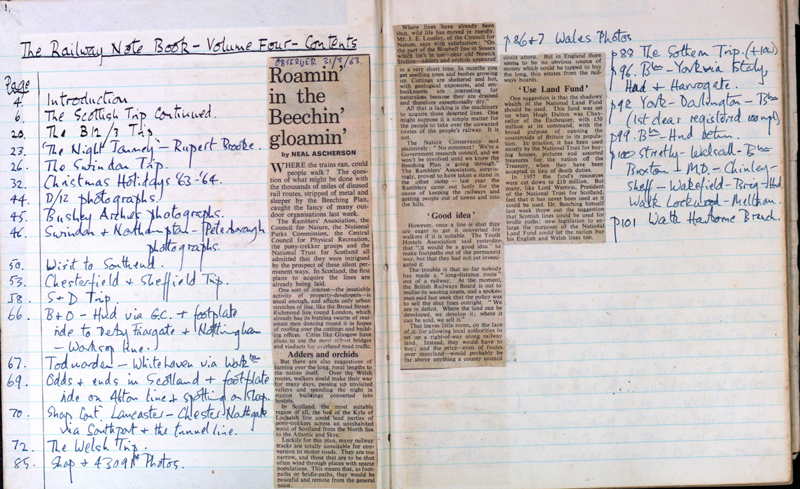 1.
The Railway Note Book - Volume Four - Contents
Page
4. Introduction
6. The Scottish Trip Continued.
20. The B12/3 Trip
23. The Night Journey - Rupert Brooke.
26. The Swindon Trip.
32. Christmas Holidays '63-'64.
44. D/12 photographs.
45. Bushey Arches photographs.
46. Swindon & Northampton - Peterborough
photographs.
50. Visit to Southend.
53. Chesterfield & Sheffield Trip.
58. S & D Trip.
66. B & O - Hud via G.C. + footplate
ride to Derby Friargate & Nottingham
- Worksop line.
67. Todmorden - Whitehaven via
69. Odds & ends in Scotland + footplate
ride on Alton line + spotting on Shap.
70. Shap Cont. Lancaster - Chester Northgate
via Southport & the tunnel line.
72. The Welsh Trip.
85. Shap + 43091 Photos.
OBSERVER 31/3/63.
Roamin'
in the
Beechin'
gloamin'
by NEAL ASCHERSON
WHERE the trains ran, could
people walk? The ques-
tion of what might be done with
the thousands of miles of disused
rail routes, stripped of metal and
sleeper by the Beeching Plan,
caught the fancy of many out-
door organisations last week.
The Ramblers' Association, the
Council for Nature, the National
Parks Commission, the Central
Council for Physical Recreation,
the pony-trekker groups and the
National Trust for Scotland all
admitted that they were intrigued
by the prospect of these silent per-
manent ways. In Scotland, the first
plans to acquire the lines are
already being laid.
One sort of interest—the insatiable
activity of property-developers—is
usual enough, and affects only urban
stretches of line, like the Broad Street-
Richmond line round London, which
already has its buzzing swarm of real-
estate men dancing round it in hopes
of roofing over the cuttings and build-
ing offices. Cities like Glasgow have
plans to use the most robust bridges
and viaducts for overhead road traffic.
Adders and orchids
But there are also suggestions of
turning over the long, rural lengths to
the nation itself. Over the Welsh
routes, walkers could make their way
for many days, passing up unvisited
valleys and spending the night in
station buildings converted into
hostels.
In Scotland, the most suitable
region of all, the bed of the Kyle of
Lochalsh line could lead parties of
pony-trekkers across an uninhabited
waist of Scotland from the North Sea
to the Atlantic and Skye.
Luckily for this plan, many railway
tracks are totally unsuitable for con-
version to motor roads. They are too
narrow, and those that are to be shut
often wind through places with sparse
populations. This means that, as foot-
paths or bridle-paths, they would be
peaceful and remote from the general
noise.
Where lines have already been
shut, wild life has moved in rapidly.
Mr. J. E. Lousley, of the Council for
Nature, says with satisfaction: "On
the part of the Bluebell line in Sussex
which isn't in use—near old Newick
Station—adders and orchids appeared
in a very short time. In months you
get seedling trees and bushes growing
up. Cuttings are sheltered and hot,
with geological exposures, and em-
bankments are interesting for
naturalists because they are drained
and therefore exceptionally dry."
All that is lacking is the machinery
to acquire these deserted lines. One
might suppose it a simple matter for
the people to take over the unwanted
routes of the people's railway. It is
not.
The Nature Conservancy said
plaintively: "No comment! We're a
Government research council, and we
won't be involved until we know the
Beeching Plan is going through."
The Ramblers' Association, surpris-
ingly, proved to have taken a stand in
favour of trains — last year the
Ramblers came out hotly for the
virtue of keeping the railways and
getting people out of towns and into
the hills.
'Good idea'
However, once a line is shut they
are eager to get it converted for
walkers if it is suitable. The Youth
Hostels Association said yesterday
that "it would be a good idea" to
make footpaths out of the permanent
way, but that they had not yet investi-
gated it.
The trouble is that so far nobody
has made a "long-distance route"
out of a railway. At the moment,
the British Railways Board is out to
realise its wasting assets, and a spokes-
man said last week that the policy was
to sell the shut lines outright. "We
are in deficit. Where the land can be
developed, we develop it; where it
can be sold, we sell it."
That leaves little room, on the face
of it, for allowing local authorities to
set up a right-of-way along railway
land. Instead, they would have to
buy; and the price—even of routes
over moorland—would probably be
far above anything a county council
could afford. But in England there
seems to be no obvious source of
money which could be tapped to buy
the long, thin estates from the rail-
ways board.
'Use Land Fund'
One suggestion is that the shadowy
wealth of the National Land Fund
should be used. This fund was set
up when Hugh Dalton was Chan-
cellor of the Exchequer, with £50
million at its command, with the
broad purpose of opening the
countryside of Britain to its popula-
tion. In practice, it has been used
mostly by the National Trust for buy-
ing houses, pictures and assorted
treasures for the nation off the
Treasury, when they have been
accepted in lieu of death duties.
In 1957 the fund's resources
were cut down to £10 million. But
many, like Lord Wemyss, President
of the National Trust for Scotland,
feel that it has never been used as it
could be used. Dr. Beeching himself
last week threw out the suggestion
that Scottish lines could be used for
bridle paths: new legislation to en-
large the purposes of the National
Land Fund could let the nation buy
his English and Welsh lines too.
p86+7 Wales Photos
p89 The Sothern Trip. (+ Iow)
p96. Bton - York via Staly
Hud & Harrogate.
p98 York - Darlington - Bton
(1st clear registered 100 mph)
p99. Bton - Hud return.
p100 Streetly - Walsall - Bton
Buxton - M.D. - Chinley -
Sheff - Wakefield - Brig - Hud
Walk Lockwood - Meltham.
p101 Walk Harborne Branch.